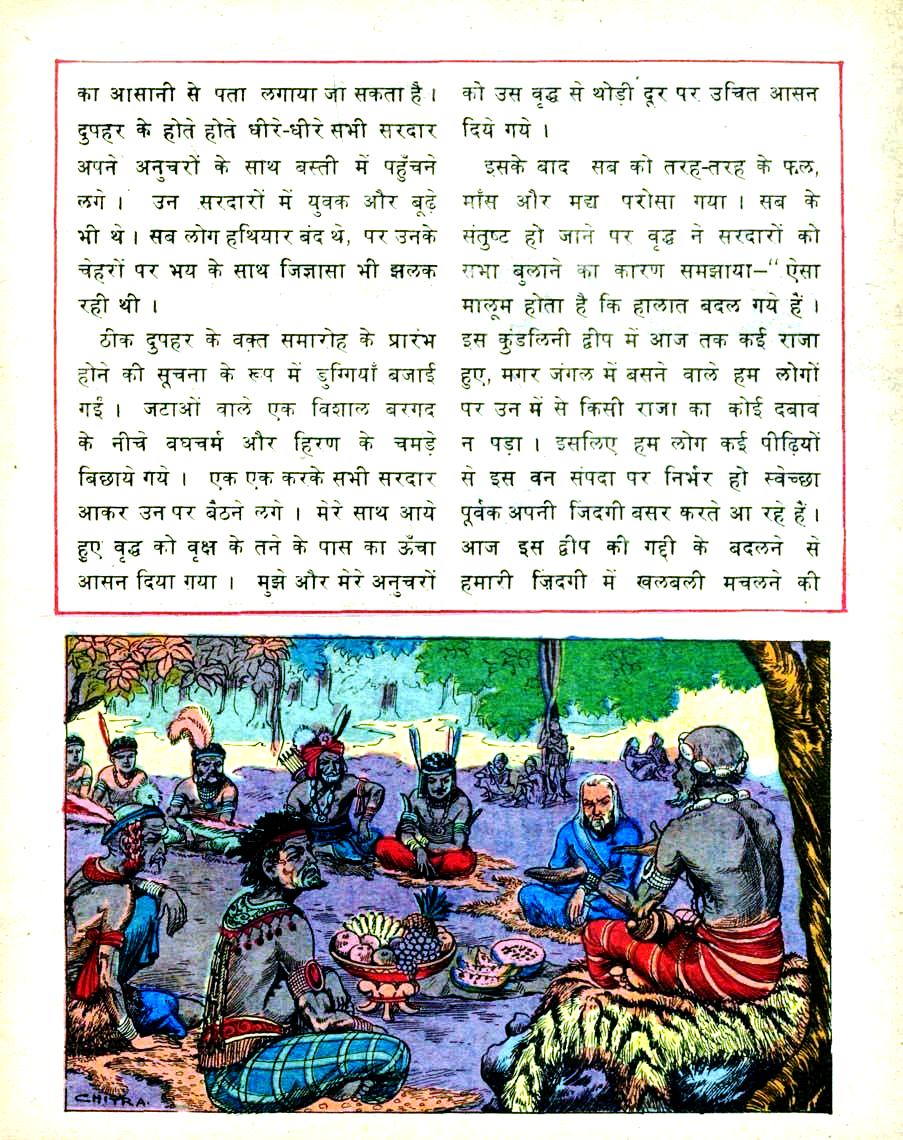 का आसानी से पता लगाया जा सकता है ।
दुपहर के होते होते धीरे-धीरे सभी सरदार
अपने अनुचरों के साथ बस्ती में पहुँचने
लगे । उन सरदारों में युवक और बूढ़े
भी थे । सब लोग हथियार बंद थे, पर उनके
चेहरों पर भय के साथ जिज्ञासा भी झलक
रही थी ।
ठीक दुपहर के वक़्त समारोह के प्रारंभ
होने की सूचना के रूप में डुग्गियाँ बजाई
गईं । जटाओं वाले एक विशाल बरगद
के नीचे बघचर्म और हिरण के चमड़े
बिछाये गये । एक एक करके सभी सरदार
आकर उन पर बैठने लगे । मेरे साथ आये
हुए वृद्ध को वृक्ष के तने के पास का ऊँचा
आसन दिया गया । मुझे और मेरे अनुचरों
को उस वृद्ध से थोड़ी दूर पर उचित आसन
दिये गये ।
इसके बाद सब को तरह-तरह के फल,
माँस और मद्य परोसा गया । सब के
संतुष्ट हो जाने पर वृद्ध ने सरदारों को
सभा बुलाने का कारण समझाया–“ ऐसा
मालूम होता है कि हालात बदल गये हैं ।
इस कुंडलिनी द्वीप में आज तक कई राजा
हुए, मगर जंगल में बसने वाले हम लोगों
पर उन में से किसी राजा का कोई दबाव
न पड़ा । इसलिए हम लोग कई पीढ़ियों
से इस वन संपदा पर निर्भर हो स्वेच्छा
पूर्वक अपनी जिंदगी बसर करते आ रहे हैं ।
आज इस द्वीप की गद्दी के बदलने से
हमारी ज़िदगी में खलबली मचलने की
CHITRA.